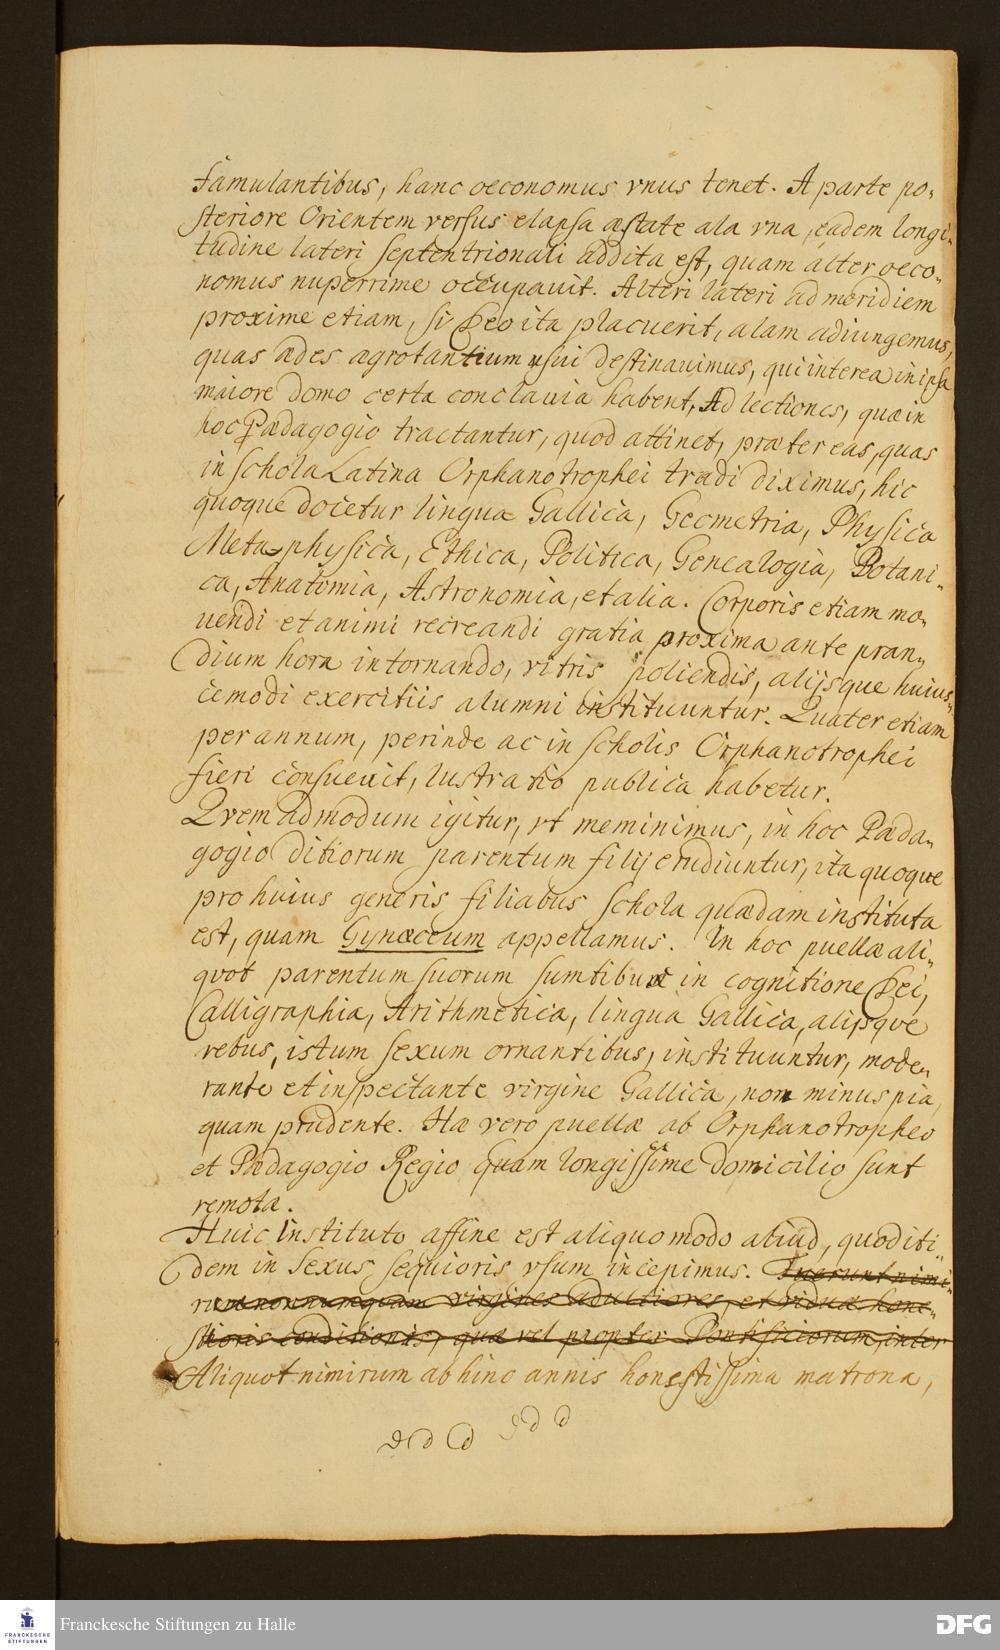 famulantibus, hanc oeconomus vnus tenet. A parte po-
steriore Orientem versus elapsa æstate ala vna, eadem longi-
tudine lateri septentrionali addita est, quam alter oeco-
nomus nuperrime occupauit. Alteri lateri ad meridiem
proxime etiam, si Deo ita placuerit, alam adiungemus,
quas ædes ægrotantium vsui destinauimus, qui interea in ipsa
maiore domo certa conclauia habent, Ad lectiones, quæ in
hoc Pædagogio tractantur, quod attinet, præter eas, quas
in schola Latina Orphanotrophei tradi diximus, hic
quoque docetur lingua Gallica, Geometria, Physica
Metaphysica, Ethica, Politica, Genealogia, Botani-
ca, Anatomia, Astronomia, et alia. Corporis etiam mo-
uendi et animi recreandi gratia proxima ante pran-
dium hora in tornando, vitris poliendis, alijsque huius-
cemodi exercitiis alumni instituuntur. Quater etiam
per annum, perinde ac in scholis Orphanotrophei
fieri consueuit, lustratio publica habetur.
Qvemadmodum igitur, vt meminimus, in hoc Pæda-
gogio ditiorum parentum filij erudiuntur, ita quoque
pro huius generis filiabus schola quædam instituta
est, quam Gynæceum appellamus. In hoc puellæ ali-
qvot parentum suorum sumtibus in cognitione Dei,
Calligraphia, Arithmetica, lingua Gallica, alijsqve
rebus, istum sexum ornantibus, instituuntur, mode-
rante et inspectante virgine Gallica, non minus pia,
quam prudente. Hæ vero puellæ ab Orphanotropheo
et Pædagogio Regio quam longissime domicilio sunt
remotæ.
Huic Instituto affine est aliquo modo aliud, quod iti-
dem in Sexus sequioris vsum incepimus. Fuerunt nimi-
rum nonnumquam virgines adultiores, et viduæ hone-
stioris conditionis, quæ vel propter Pontificiorum, inter
Aliquot nimirum abhinc annis honestissima matrona,
Franckesche Stiftungen zu Halle
FRANCKESCHE
STIFTUNGEN
DFG